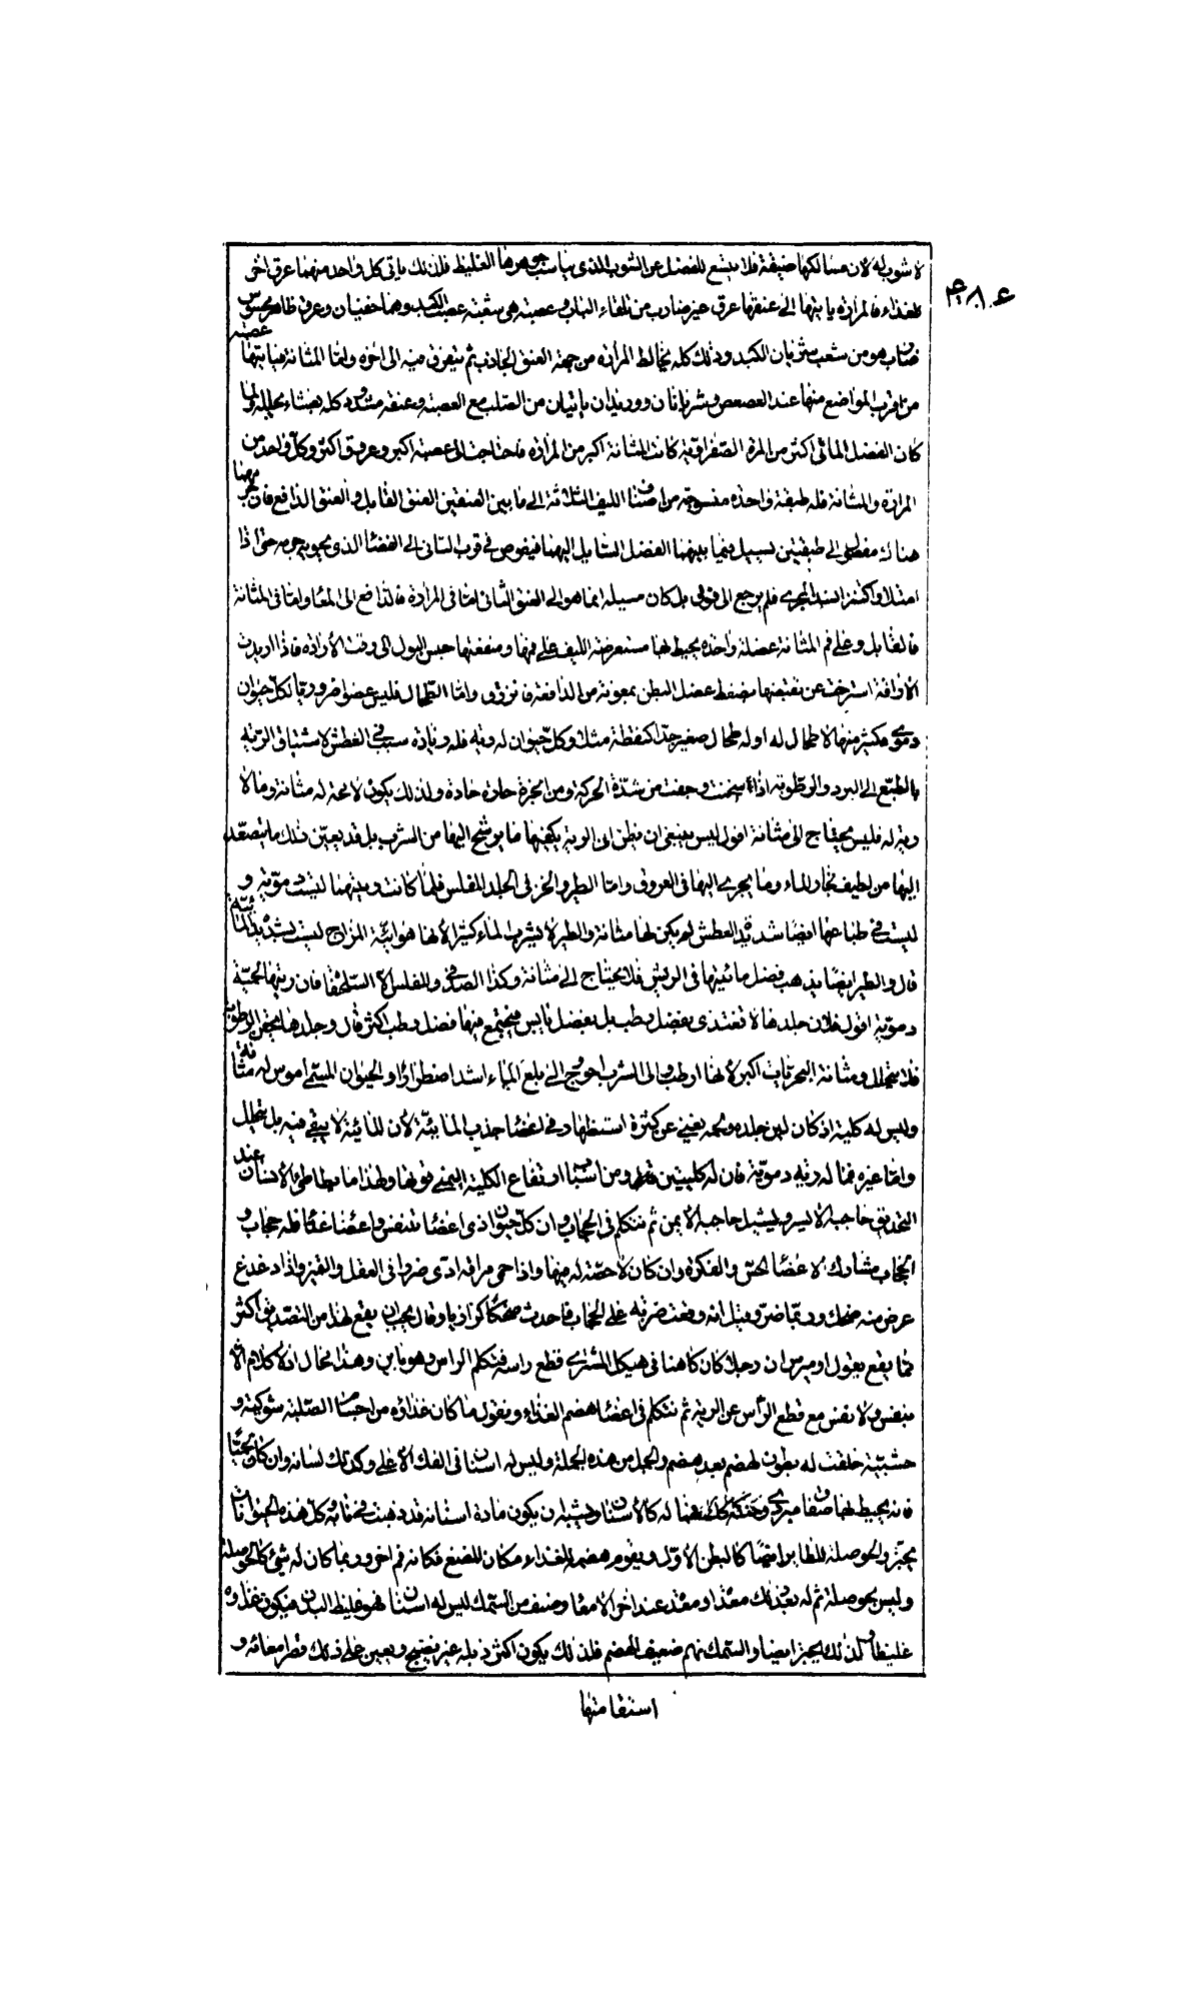 لا شوب له لان مسالكها ضيقة فلا يتسع للفضل عن الشوب الذى يناسب جوهرها الغليظ فلذلك ياتى كل واحد منهما عرق اخر
٤٨٠٤
للغذاء فالمرارة ياتيها الى عنقها عرق غير ضارب من تلقاء الباب وعصبته هى شعبة عصب الكبد وهما خفيان وعرق ظاهر محسوس
ضارب هو من شعب شريان الكبد وذلك كله يخالط المرارة من جهة العنق الجاذب ثم يتفرق فيه الى اخره واما المثانة فياتيها عصبته
من اقرب المواضع منها عند العصعص وشريانان ووريدان ياتيان من الصلب مع العصبة وعنقه مشدود كله بغشاء يجلله ولما
كان الفضل المائى اكثر من المرة الصفراوية كانت المثانة اكبر من المرارة فاحتاجت الى عصبة اكبر وعروق اكثر وكل واحد من
المرارة والمثانة فله طبقة واحدة منسوجة من اصناف الليف الثلاثة الى ما بين العنقين العنق القابل والعنق الدافع فان جرمها
هناك الى طبقتين يسيل فيما بينهما الفضل السايل اليهما فيغوص فى قرب الثانى الى الفضا الذى يحويه جرمه حتى اذا
امتلا واكتنز انسد المجرى فلم يرجع الى فوق بل كان مسيله انما هو الى العنق الثانى اما فى المرارة فالدافع الى المعا واما فى المثانة
فالقابل وعلى فم المثانة عضلة واحدة يحيط بها مستعرضة الليف على فمها ومنفعتها حبس البول الى وقت الارادة فاذا اريدت
الاراقة استرخت عن تقبضها فضغط عضل البطن بمعونة من الدافعة فانزرق واما الطحال فليس عضوا ضروريا لكل حيوان
دموى فكثير منها لا طحال له او له طحال صغير جدا كنقطة مثلا وكل حيوان له رية فله زيادة سبب فى العطش لاشتياق الرية
بالطبع الى البرد والرطوبة اذا سخنت وجفت من شدة الحركة ومن ابخرة حارة حادة ولذلك يكون لا محة له مثانة وما لا
رية له فليس يحتاج الى مثانة اقول ليس ينبغى ان يظن ان الرية يكفيها ما يرشح اليها من الشرب بل قد يعين ذلك ما يتصعد
اليها من لطيف بخار الماء وما يجرى اليها فى العروق واما الطير والحزنى الجلد المفلس فلما كانت ريتهما ليست دموية و
ليست فى طباعها ايضا شديد العطش لم يكن لها مثانة والطير لا يشرب الماء كثيرا لانها هوائية المزاج ليست بشديدة المائية
قال والطير ايضا يذهب فضل مائيتها فى الريش فلا يحتاج الى مثانة وكذا الصدفى والمفلس الا السلحفا فان ريتها لحمية
دموية اقول فلان جلدها لا تغتذى بفضل رطب بل بفضل يابس فيجتمع فيها فضل رطب اكثر قال وجلدها يحقن الرطوبة
فلا يتحلل ومثانة البحريات اكبر لانها ارطب والى الشرب احوج الى بلع الماء اشد اضطرارا والحيوان المسمى اموس له مثانة
وليس له كلية اذ كان لين جلده ولحمه يغنى عن كثرة استظهار فى اعضا جذب المائية لان المائية لا يبقى فيه بل يتحلل
واما غيره مما له رية دموية فان له كليتين ومن اسباب ارتفاع الكلية اليمنى فوقها ولهذا ما يطاطى الانسان عند
التحديق حاجبه الايسر ويشيل حاجبه الايمن ثم نتكلم فى الحجاب وان كل حيوان ذى اعضا تنفس واعضا غذا فله حجاب و
الحجاب مشارك لاعضا الحس والفكرة وان كان لا حصة له فيها واذا حمى مراقه ادى ضررا فى العقل والتميز واذا دغدغ
عرض منه ضحك وربما ضر وقيل انه وقعت ضربة على الحجاب فاحدث ضحكا كزازيا وقال يجب ان يقع لهذا من التصديق اكثر
مما يقع بقول اوميرس ان رجلا كان كاهنا فى هيكل المشترى قطع راسه فتكلم الراس وهو باين وهذا محال اذ لا كلام الا
بنفس ولا نفس مع قطع الراس عن الرية ثم نتكلم فى اعضا هضم الغذاء ونقول ما كان غذاؤه من اجسام الصلبة شوكية و
خشبية خلقت له بطون لهضم بعد هضم والجمل من هذه الجملة وليس له اسنان فى الفك الاعلى وكذلك لسانه وان كان لحميا
فانه يحيط لها صفا مبرى وحنكه كله له كالاسنان ويشبه ان يكون مادة اسنانه قد ذهبت فى نابه وكل هذه الحيوانات
يجتر والحوصلة للطاير ايضا كالبطن الاول ويقوم هضمه للغذاء مكان المضغ فكانه فم اخر وربما كان له شئ كالحوصلة
وليس بحوصلة ثم له بعد ذلك معدة او معدة عند اخر الامعا وصنف من السمك ليس له اسنان فهو غليظ البدن فيكون غذاوه
غليظا ولذلك يجتر ايضا والسمك نهم ضعيف الهضم فلذلك يكون اكثر زبله غير نضيج ويعين على ذلك قصر امعائه و
استقامتها